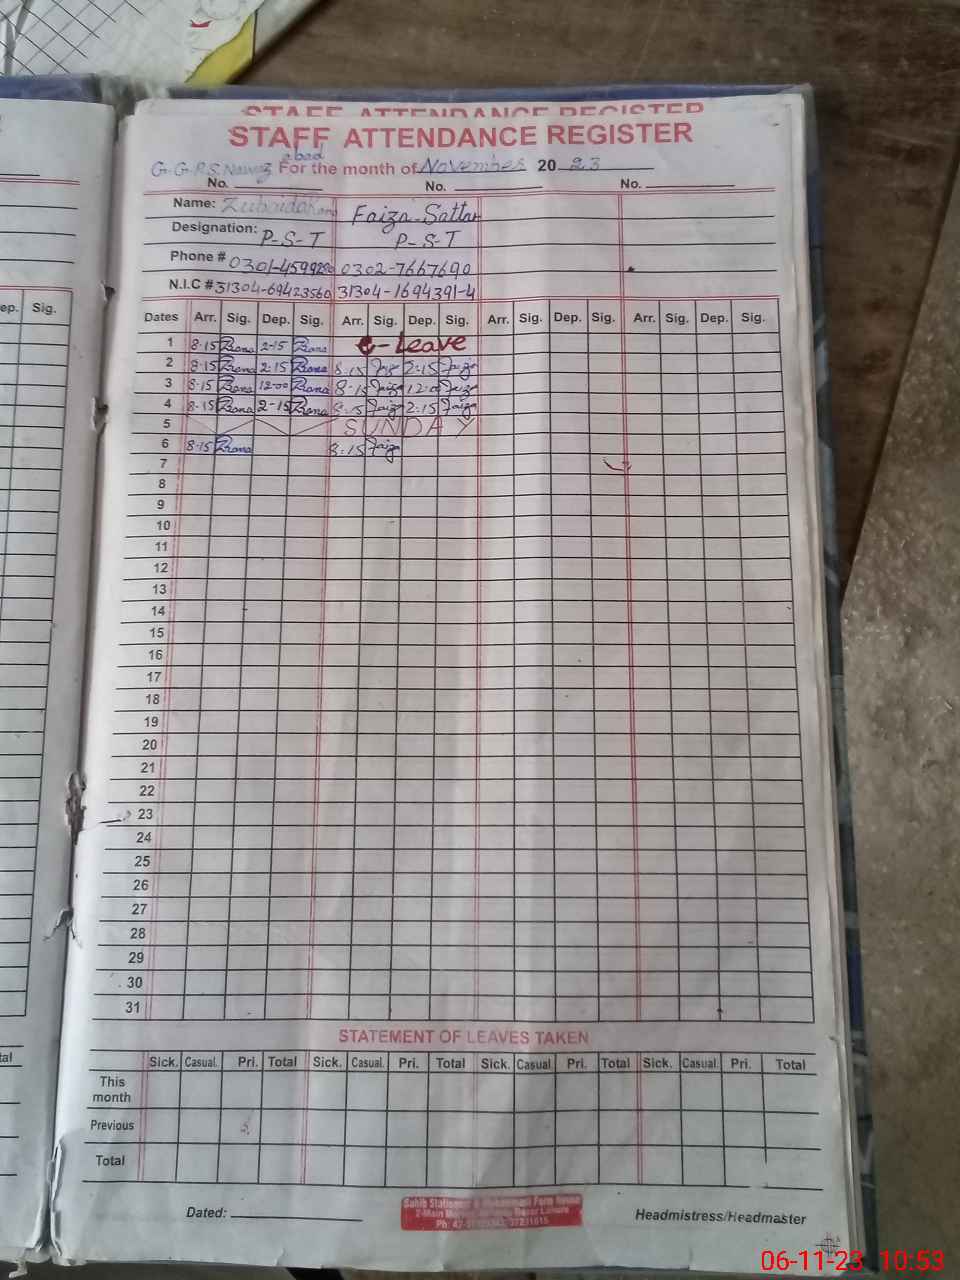 STAFF ATTENDANCE REGISTER
STAFF ATTENDANCE REGISTER
abad
For the month of November 20 23
No. No. No.
Name: Zubaida Faiza Sattar
Designation: P-S-T P-S-T
Phone # 0302-7667690
N.I.C # 31304-1694391-4
ep. Sig.
Dates Arr. Sig. Dep. Sig. Arr. Sig. Dep. Sig. Arr. Sig. Dep. Sig. Arr. Sig. Dep. Sig.
1 8-15 2-15 Leave
2 8-15 2:15 8-15 Faiz 2:15 Faiza
3 8-15 12-00 8-15 Faiza Faiza
4 8-15 2-15 8-15 Faiza 2:15 Faiza
5 SUNDAY
6 8-15 8:15 Faiza
7
8
9
10
11
12
13
14
15
16
17
18
19
20
21
22
23
24
25
26
27
28
29
30
31
STATEMENT OF LEAVES TAKEN
Sick. Casual. Pri. Total Sick. Casual. Pri. Total Sick. Casual Pri. Total Sick. Casual. Pri. Total
This
month
tal
Previous
Total
Dated:
Headmistress/Headmaster
06-11-23 10:53